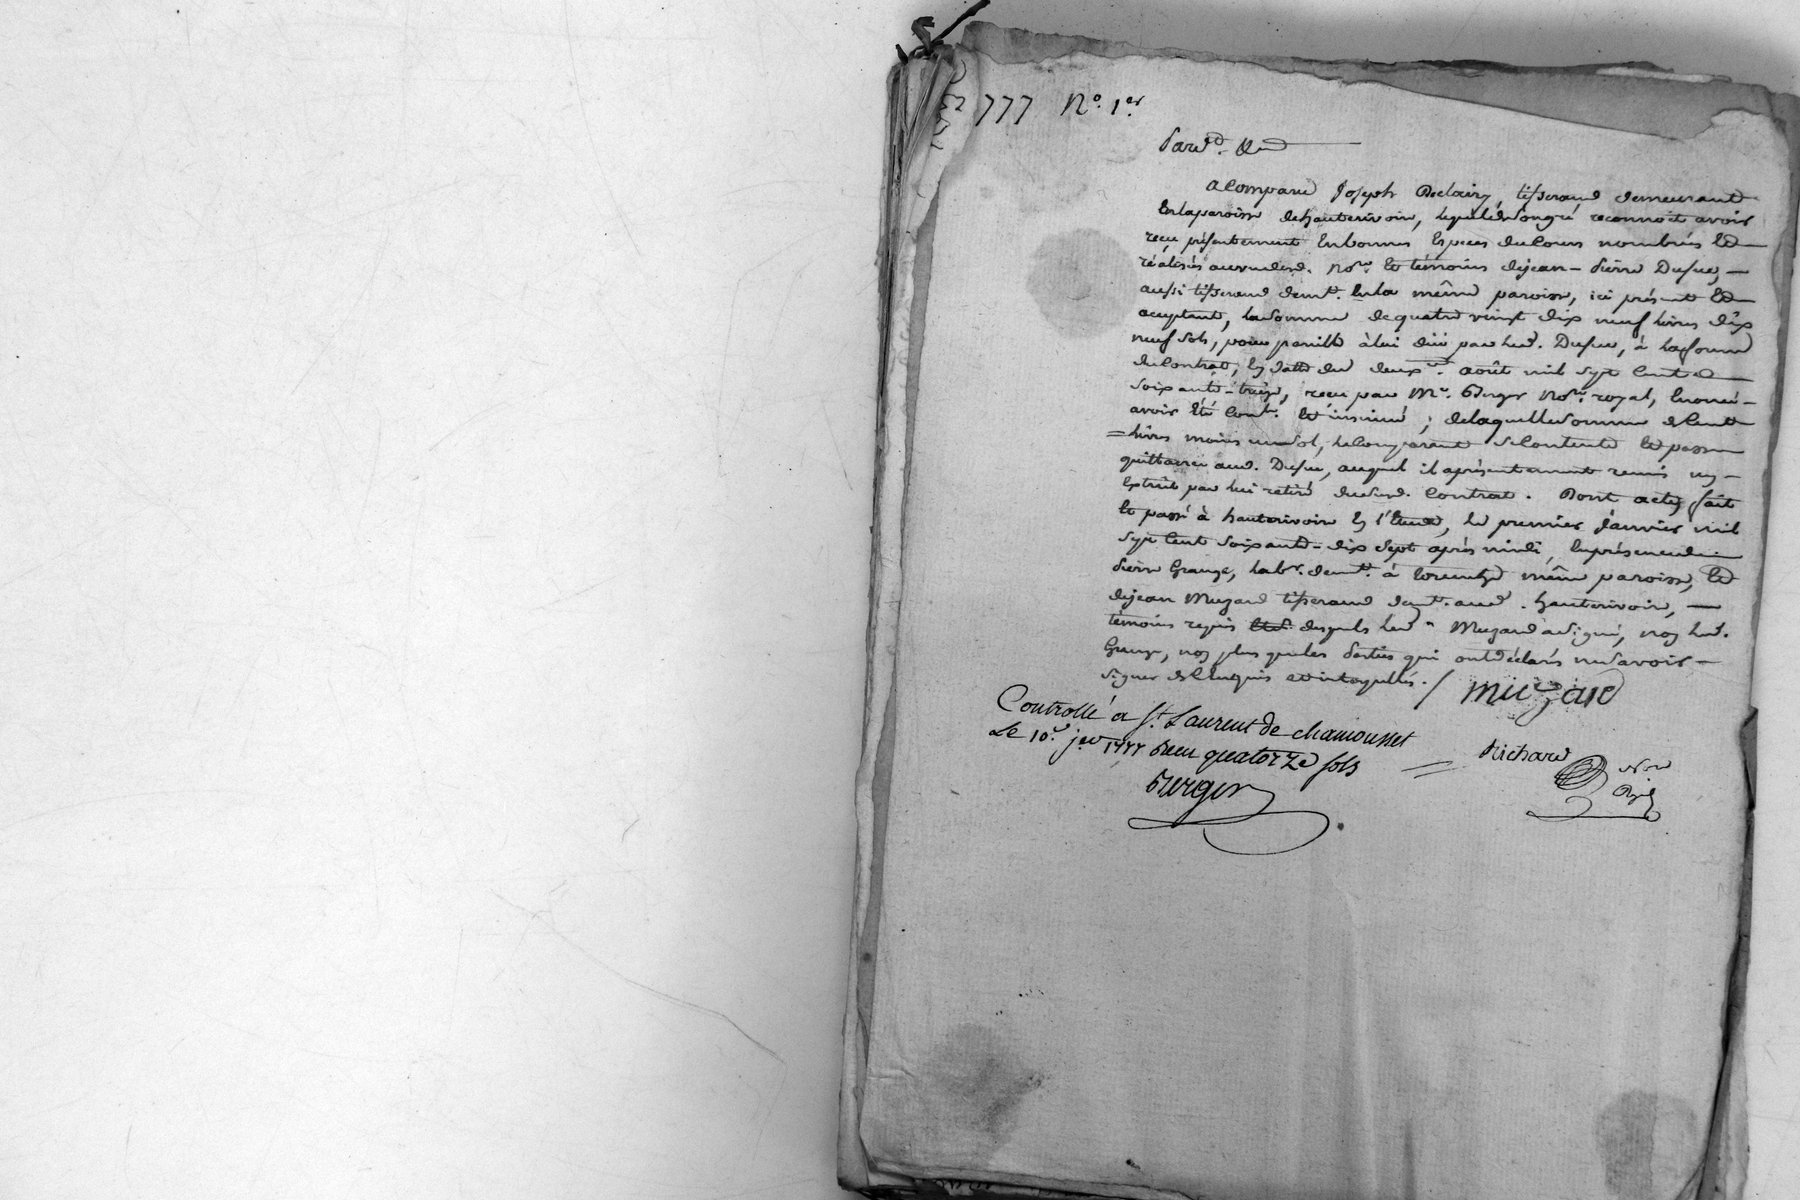 777 N.º 1.er
Pard.t Nd
A Comparu Joseph tisserand demeurant
En la paroisse de hauterivoire, lequel de son gré reconnoit avoir
reçu présentement En bonnes Especes du Cours nombrées Et
réalisés au vu dud. no.re Et témoins de jean-Pierre Dufue, —
aussi tisserand demt. En la même paroisse, ici présent Et
acceptant, la somme de quatre vingt dix neuf livres dix
neuf sols, pour pareille à lui düe par led. Dufue, à la forme
du Contrat, En datte du deux.e août mil sept Cent
soixante-treize, reçu par M.e Berger No.re royal, Enoncé
avoir été Cont. Et insinué ; de laquelle somme de Cent
livres moins un sol, le Comparant se Contente Et passe
quittance aud. Dufue, auquel il a présentement remis un
Extrait par lui retiré du susd. Contrat. Dont acte, fait
Et passé à hauterivoire En l'Etude, le premier janvier mil
sept Cent soixante-dix sept après midi, En présence de
Pierre Grange, labr. demt. à même paroisse, Et
de jean Muzard tisserand demt. aud. hauterivoire, —
témoins requis desquels led. Muzard a signé, non led.
Grange, non plus que les Parties qui ont déclaré ne savoir —
signer de Ce Enquis Et interpellés. / muzard
Controllé a St. Laurent de chamousset
Le 10.e jer. 1777 Reçu quatorze sols
Richard Nre
Berger
Ryl